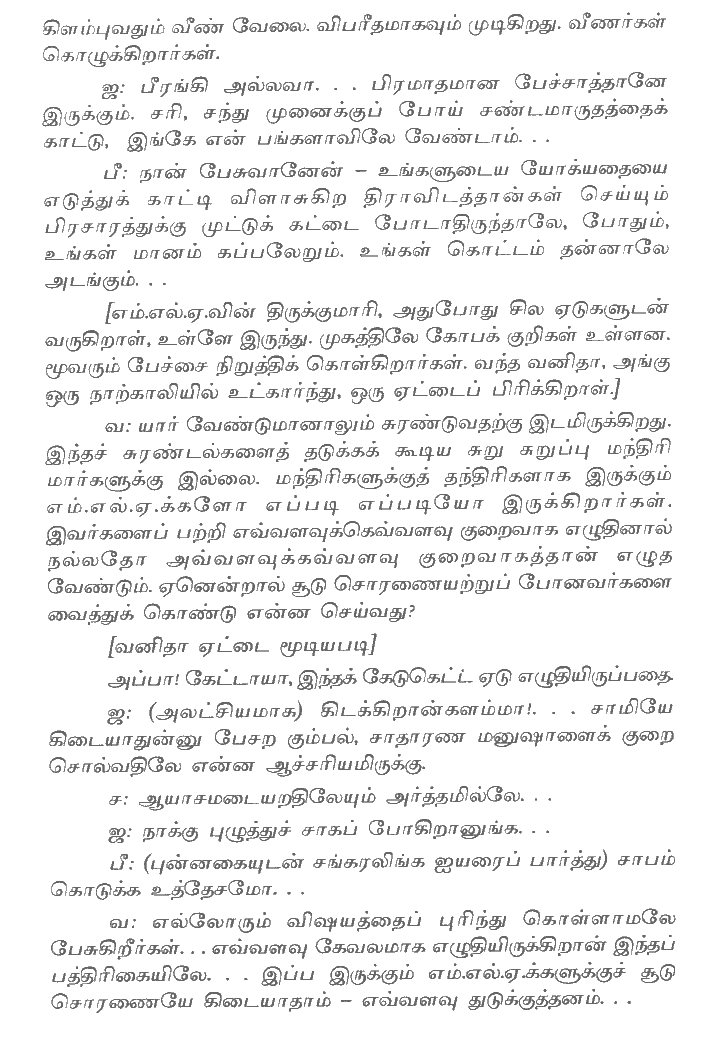 கிளம்புவதும் வீண் வேலை. விபரீதமாகவும் முடிகிறது. வீணர்கள்
கொழுக்கிறார்கள்.
ஐ: பீரங்கி அல்லவா. . . பிரமாதமான பேச்சாத்தானே
இருக்கும். சரி, சந்து முனைக்குப் போய் சண்டமாருதத்தைக்
காட்டு, இங்கே என் பங்களாவிலே வேண்டாம். . .
பீ: நான் பேசுவானேன் – உங்களுடைய யோக்யதையை
எடுத்துக் காட்டி விளாசுகிற திராவிடத்தான்கள் செய்யும்
பிரசாரத்துக்கு முட்டுக் கட்டை போடாதிருந்தாலே, போதும்,
உங்கள் மானம் கப்பலேறும். உங்கள் கொட்டம் தன்னாலே
அடங்கும். . .
[எம்.எல்.ஏ.வின் திருக்குமாரி, அதுபோது சில ஏடுகளுடன்
வருகிறாள், உள்ளே இருந்து. முகத்திலே கோபக் குறிகள் உள்ளன.
மூவரும் பேச்சை நிறுத்திக் கொள்கிறார்கள். வந்த வனிதா, அங்கு
ஒரு நாற்காலியில் உட்கார்ந்து, ஒரு ஏட்டைப் பிரிக்கிறாள்.]
வ: யார் வேண்டுமானாலும் சுரண்டுவதற்கு இடமிருக்கிறது.
இந்தச் சுரண்டல்களைத் தடுக்கக் கூடிய சுறு சுறுப்பு மந்திரி
மார்களுக்கு இல்லை. மந்திரிகளுக்குத் தந்திரிகளாக இருக்கும்
எம்.எல்.ஏ.க்களோ எப்படி எப்படியோ இருக்கிறார்கள்.
இவர்களைப் பற்றி எவ்வளவுக்கெவ்வளவு குறைவாக எழுதினால்
நல்லதோ அவ்வளவுக்கவ்வளவு குறைவாகத்தான் எழுத
வேண்டும். ஏனென்றால் சூடு சொரணையற்றுப் போனவர்களை
வைத்துக் கொண்டு என்ன செய்வது?
[வனிதா ஏட்டை மூடியபடி]
அப்பா! கேட்டாயா, இந்தக் கேடுகெட்ட ஏடு எழுதியிருப்பதை.
ஐ: (அலட்சியமாக) கிடக்கிறான்களம்மா!. . . சாமியே
கிடையாதுன்னு பேசற கும்பல், சாதாரண மனுஷாளைக் குறை
சொல்வதிலே என்ன ஆச்சரியமிருக்கு.
ச: ஆயாசமடையறதிலேயும் அர்த்தமில்லே. . .
ஐ: நாக்கு புழுத்துச் சாகப் போகிறானுங்க. . .
பீ: (புன்னகையுடன் சங்கரலிங்க ஐயரைப் பார்த்து) சாபம்
கொடுக்க உத்தேசமோ. . .
வ: எல்லோரும் விஷயத்தைப் புரிந்து கொள்ளாமலே
பேசுகிறீர்கள். . . எவ்வளவு கேவலமாக எழுதியிருக்கிறான் இந்தப்
பத்திரிகையிலே. . . இப்ப இருக்கும் எம்.எல்.ஏ.க்களுக்குச் சூடு
சொரணையே கிடையாதாம் – எவ்வளவு துடுக்குத்தனம். . .